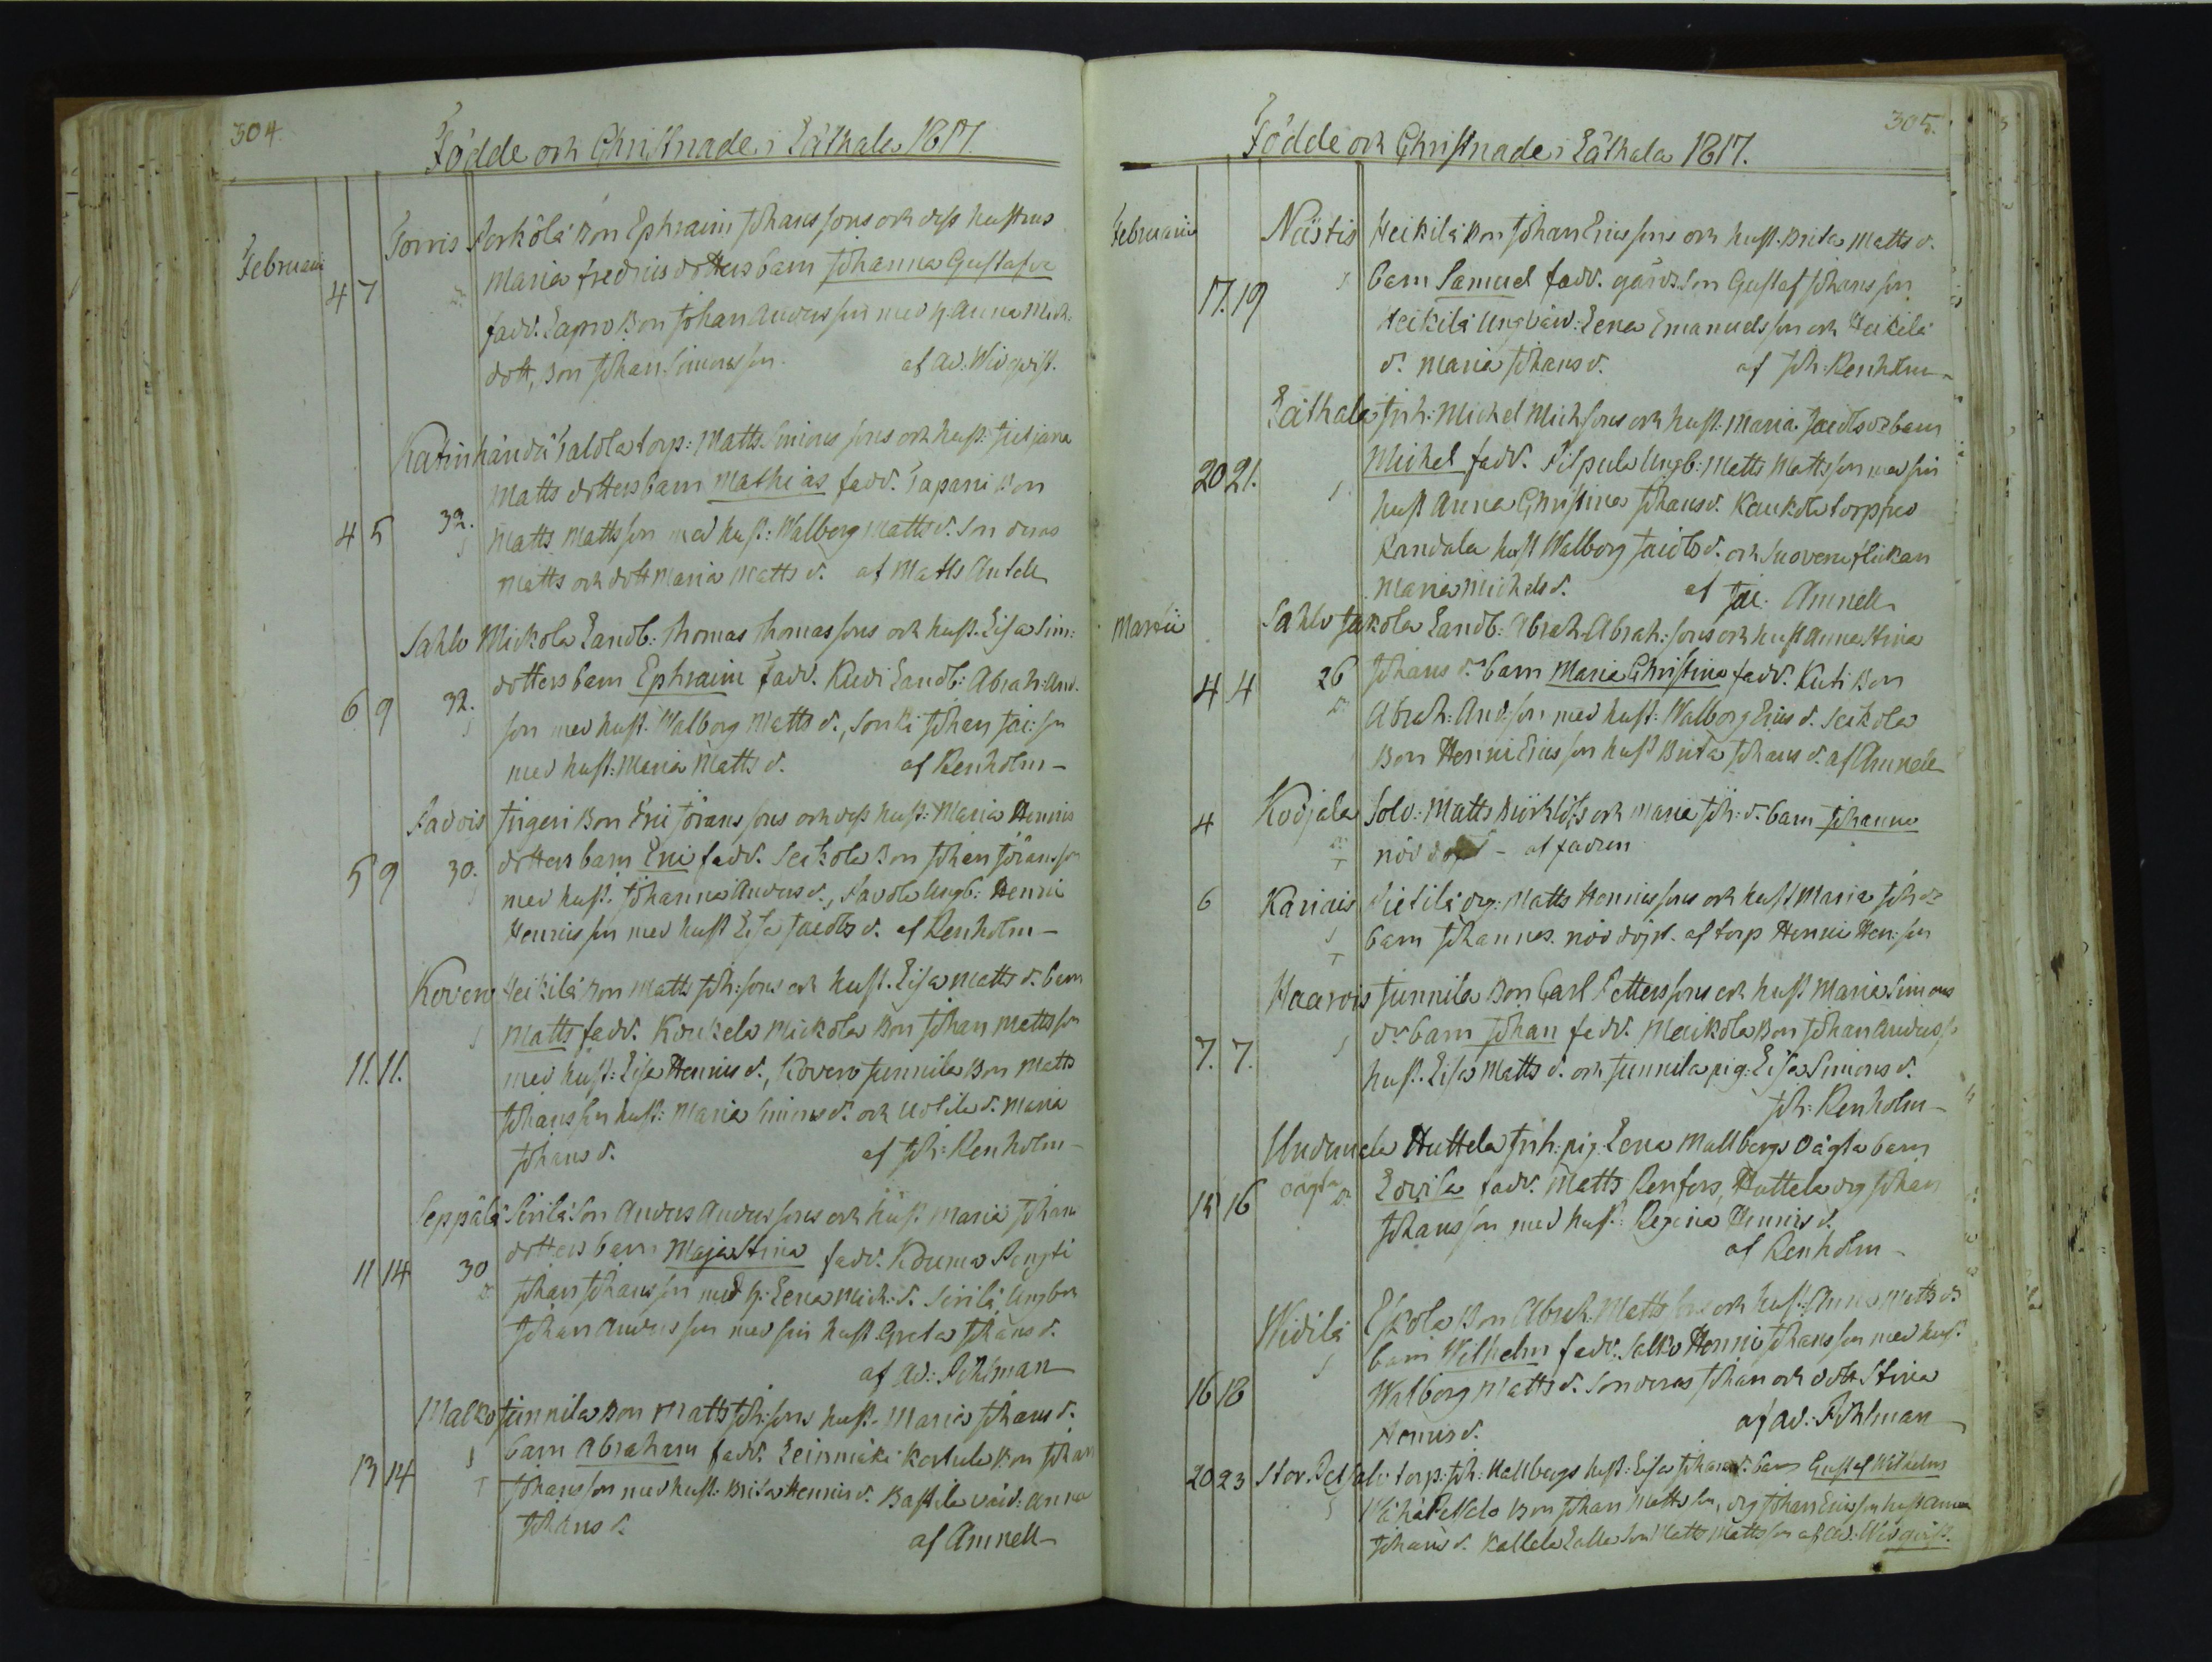 304.
Födde och Christnade i Läthala 1817.
Februarii
Torris Porkola Bon Ephraim Johanssons och dess hustrus
4 7 Maria Fredrics dotters barn Johanna Gustafva
fadd. Bon Johan Andersson med h. Anna Mich.
dott, Bon Johan Simonsson. af Ad: Widqvist.
Katinhändä Taldla torp: Matts Simons sons och hust: Juliana
Matts dotters barn Mathias fadd. Tapani Bon
4 5 32. Matts Mattsson med hust: Walborg Mattsd. Son deras
Matts och dott Maria Matts d. af Matts Antell
Sahlo Mickola Landb: Thomas Thomassons och hust. Lisa Sim:
dotters barn Ephraim fadd. Landb: Abrah: And.
6 9 32. son med hust. Walborg Matts d., Johan Jac: son
med hust: Maria Matts d. af Renholm
Padvis Jirgeri Bon Eric Jöranssons och dess hust: Maria Henrics
5 9 30. dotters barn Eric fadd. Seikola Bon Johan Jöransson
med hust. Johanna Anders d., Pavola Ungb: Henric
Henricsson med hust Lisa Jacobs d. af Renholm
Kovero Heikilä Bon Matts Joh:sons och hust. Lisa Matts d. barn
Matts fadd. Koukela Mickola Bon Johan Mattsson
11. 11. med hust: Lisa Henrics d., Kovero Junnila Bon Matts
Johansson hust: Maria Simons d. och Uotila d. Maria
Johans d. af Joh: Renholm
Seppälä Sirilä Son Anders Anderssons och hust. Maria Johans
dotters barn Maja Stina fadd. Kouma Pengti
11 14 30 Johan Johansson med h: Lena Mich: d. Sirilä Ungbon
Johan Andersson med sin hust Greta Johans d.
af Ad: Pihlman
Malko Junnila Bon Matts Joh:sons hust. Maria Johans d.
barn Abraham fadd. Leinmäki Kartula Bon Johan
13 14 Johansson med hust: Brita Henrics d. Bastila Anna
Johans d. af Amnell
305.
Födde och Christnade i Läthala 1817.
Februarii
Nästis Heikilä Bon Johan Ericssons och hust. Brita Matts d.
17. 19 barn Samuel fadd. gårds Son Gustaf Johansson
Heikilä Lena Emanuelsson och Heikilä
d. Maria Johans d. af Joh: Renholm
Läthala Inh: Michel Michssons och hust: Maria Jacobs d. barn
20 21. Michel fadd. Pilpula Ungb: Matts Mattsson med sin
hust Anna Christina Johans d. Kaukola torpare
Randala hust Walborg Jacobs d. och Suovero flickan
Maria Michels d. af Jac. Amnell
Martii
Sahlo Jakola Landb: Abrah. Abrah:sons och hust Anna Stina
4 4 26 Johans d. barn Maria Christina fadd. Kuti Bon
Abrah: And.son med hust: Walborg Erics d. Seikola
Bon Henric Ericsson hust Brita Johans d. af Amnell
4 Kodjala Sold: Matts och Maria Joh: d. barn Johanna
nöd döpt - af fadren
6 Kariais Pietilä drg: Matts Henricssons och hust Maria Joh. d.
barn Johannes. nöd döpt. af torp Henric Hen: son
Haarois Junnila Bon Carl Petterssons och hust Maria Simons
d. barn Johan fadd. Meikola Bon Johan Anderss.
7. 7. hust. Lisa Matts d. och Junnila pig: Lisa Simons d.
Joh: Renholm
Undumala Huttela Inh: pig. Lena Mallbergs oägta barn
15 16 oägta Lovisa fadd. Matts Renfors, Huttela drg Johan
Johansson med hust: Regina Henrics d.
af Renholm
Widilä Eskola Bon Abrah. Mattssons och hust: Anna Matts d.
barn Wilhelm fadd. Salko Henric Johansson med hust.
16 18 Walborg Matts d. Son deras Johan och dott Stina
Henrics d. af Ad: Pihlman
20 23 Stor Petsalo torp: Joh: Hallbergs hust: Lisa Johans d. barn Gustaf Wilhelm
Wähä Petsalo Bon Johan Mattsson, drg Johan Ericsson hust Anna
Johans d. Kallela Matts Mattsson af Ad: Widqvist.